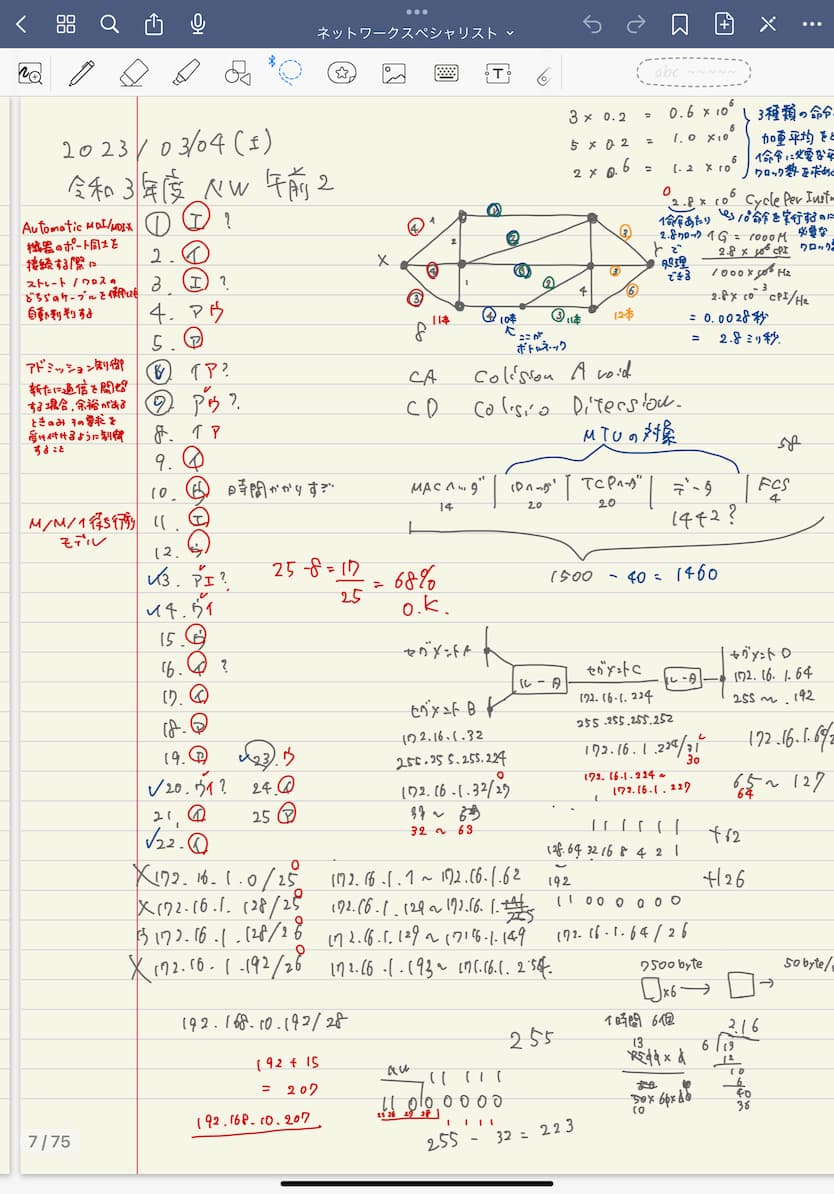 ネットワークスペシャリスト
2023/03/04(土)
令和3年度 NW 午前2
3 × 0.2 = 0.6 × 10⁶
5 × 0.2 = 1.0 × 10⁶
2 × 0.6 = 1.2 × 10⁶
3種類の命令
加重平均を
1命令に必要な
クロック数を求め
2.8 × 10⁶ Cycle Per Inst
1命令あたり
2.8クロック
で
処理
できる
10⁶命令を実行するのに
必要な
クロック
1G = 1000M
2.8 × 10⁶ CPI
1000 × 10⁶ Hz
2.8 × 10⁻³ CPI/Hz
= 0.0028秒
= 2.8ミリ秒.
Automatic MDI/MDI-X
機器のポート同士を
接続する際に
ストレート/クロスの
どちらのケーブルを使用しても
自動判別する
① エ ?
2. イ
3. エ ?
4. ア ウ
5. ア
アドミッション制御
新たに通信を開始
する場合、余裕がある
ときのみその要求を
受け付けるように制御
すること
6 イ ア?
7. ア ウ ?.
8. イ ア
9. イ
10. ウ 時間かかりすぎ
M/M/1 待ち行列
モデル
11. エ
12. ウ
13. ア エ?
14. ウ イ
15. ウ
16. イ ?
17. イ
18. ア
19. ア
20. ウ イ ?
21. イ
22. イ
23. ウ
24. イ
25 ア
X
Y
8
11本
10本
11本
12本
ここが
ボトルネック
CA Colission Avoid
CD Colisio Ditersion.
MTUの対象
58
MACヘッダ
14
IPヘッダ
20
TCPヘッダ
20
データ
1442?
FCS
4
1500 - 40 = 1460
25-8 = 17
25
= 68%
O.K.
セグメントA
ルータ
セグメントC
ルータ
セグメントD
172.16.1.64
255 ~ .192
セグメントB
172.16.1.224
255.255.255.252
172.16.1.32
255.255.255.224
172.16.1.224/31
30
172.16.1.224~
172.16.1.227
65 ~ 127
64
172.16.1.32/27
32 ~ 63
1 1 1 1 1 1
128 64 32 16 8 4 2 1
+62
+126
192
1 1 0 0 0 0 0 0
172.16.1.64/26
X172.16.1.0/25 172.16.1.1~172.16.1.62
X172.16.1.128/25 172.16.1.129~172.16.1.
ウ172.16.1.128/26
X172.16.1.192/26
192.168.10.192/28
192 + 15
= 207
192.168.10.207
255
1 1 1 1 1
11 0 0 0 0 0 0
255 - 32 = 223
7500byte
×6
50byte/
1時間 6個
13
10
2.16
6
13
12
10
6
40
36
7/75